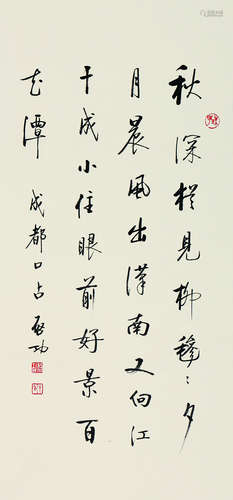 秋深犹見柳毿〻夕
月晨風出漢南又向江
干成小住眼前好景百
花潭 成都口占 启功